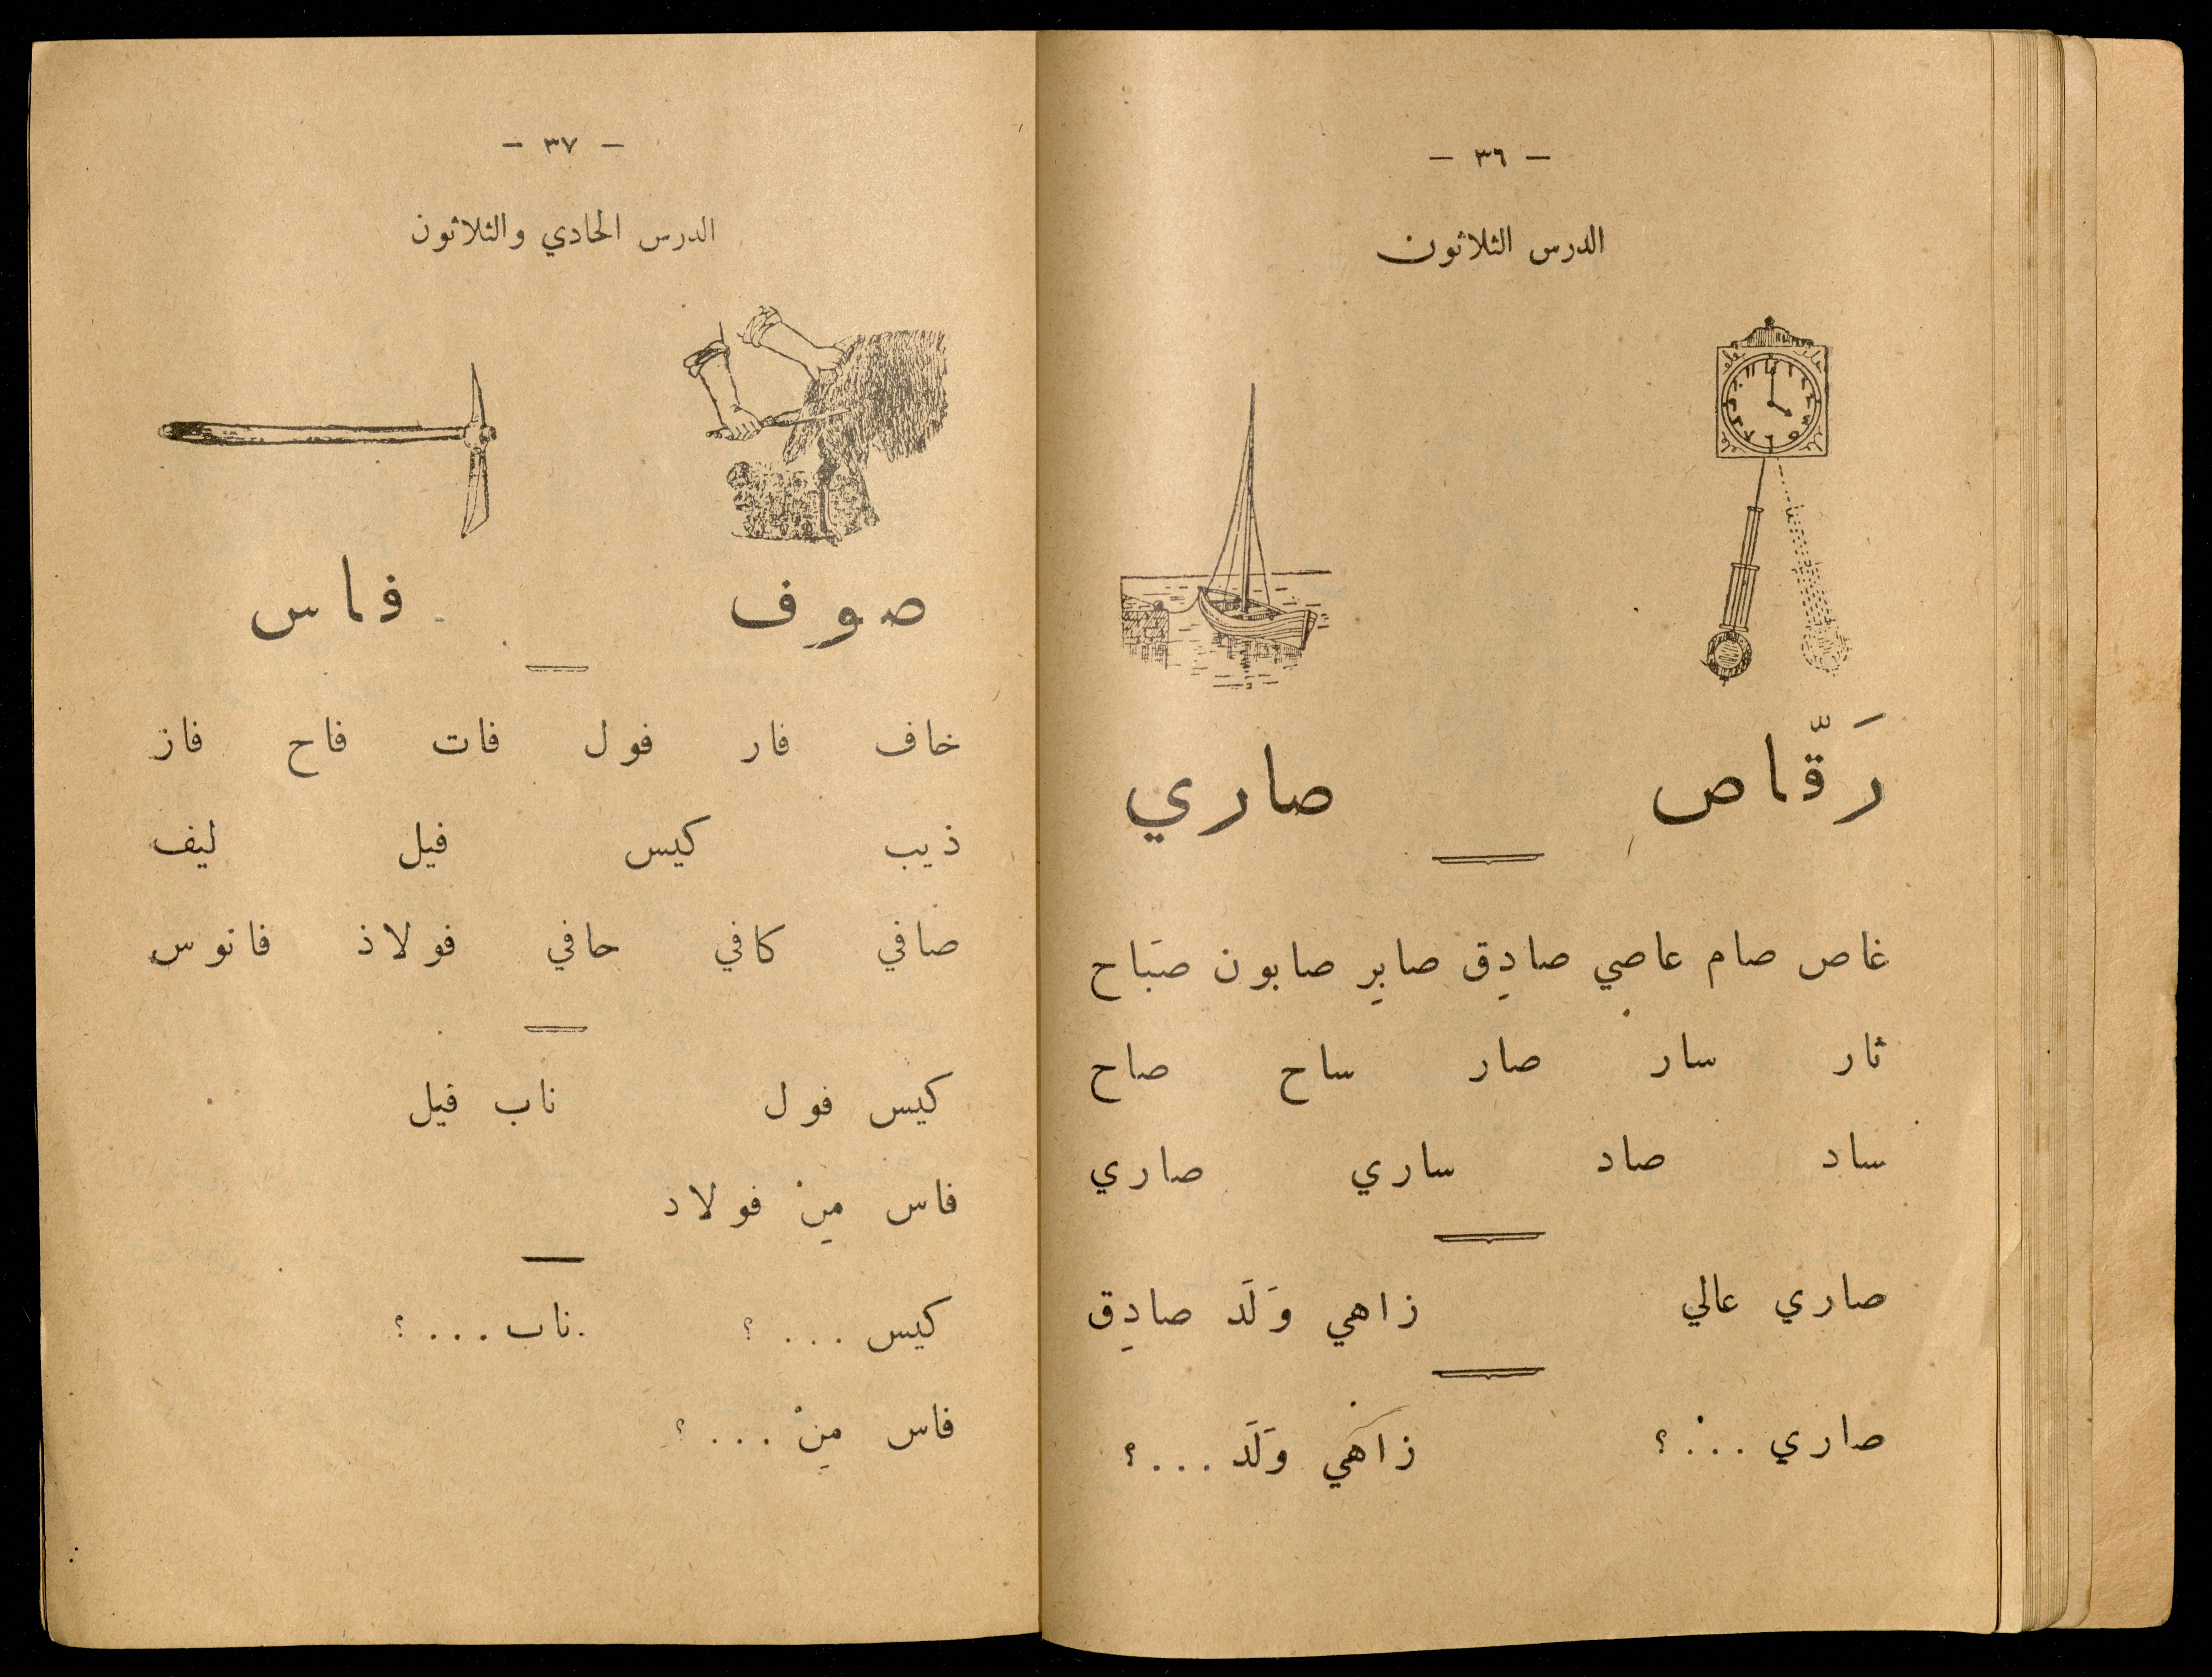 — ٣٦ —
الدرس الثلاثون
رَقّاص صاري
غاص صام عاصي صادِق صابِر صابون صَباح
ثار سار صار ساح صاح
ساد صاد ساري صاري
صاري عالي زاهي وَلَد صادِق
صاري . . . ؟ زاهي وَلَد . . . ؟
— ٣٧ —
الدرس الحادي والثلاثون
صوف فاس
خاف فار فول فات فاح فاز
ذيب كيس فيل ليف
صافي كافي حافي فولاذ فانوس
كيس فول ناب فيل
فاس مِنْ فولاد
كيس . . . ؟ ناب . . . ؟
فاس مِنْ . . . ؟